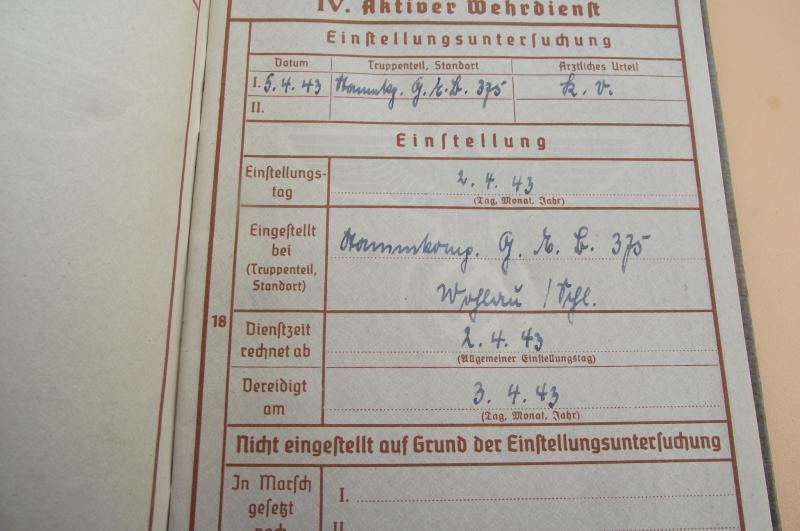 IV. Aktiver Wehrdienst
Einstellungsuntersuchung
Datum Truppenteil, Standort Ärztliches Urteil
I. 5. 4. 43 Stammkp. G. E. B. 375 k. v.
II.
Einstellung
Einstellungs-
tag
2. 4. 43
(Tag, Monat, Jahr)
Eingestellt
bei
(Truppenteil,
Standort)
Stammkomp. G. E. B. 375
Wohlau / Schl.
18
Dienstzeit
rechnet ab
2. 4. 43
(Allgemeiner Einstellungstag)
Vereidigt
am
3. 4. 43
(Tag, Monat, Jahr)
Nicht eingestellt auf Grund der Einstellungsuntersuchung
In Marsch
gesetzt
nach
I.
II.